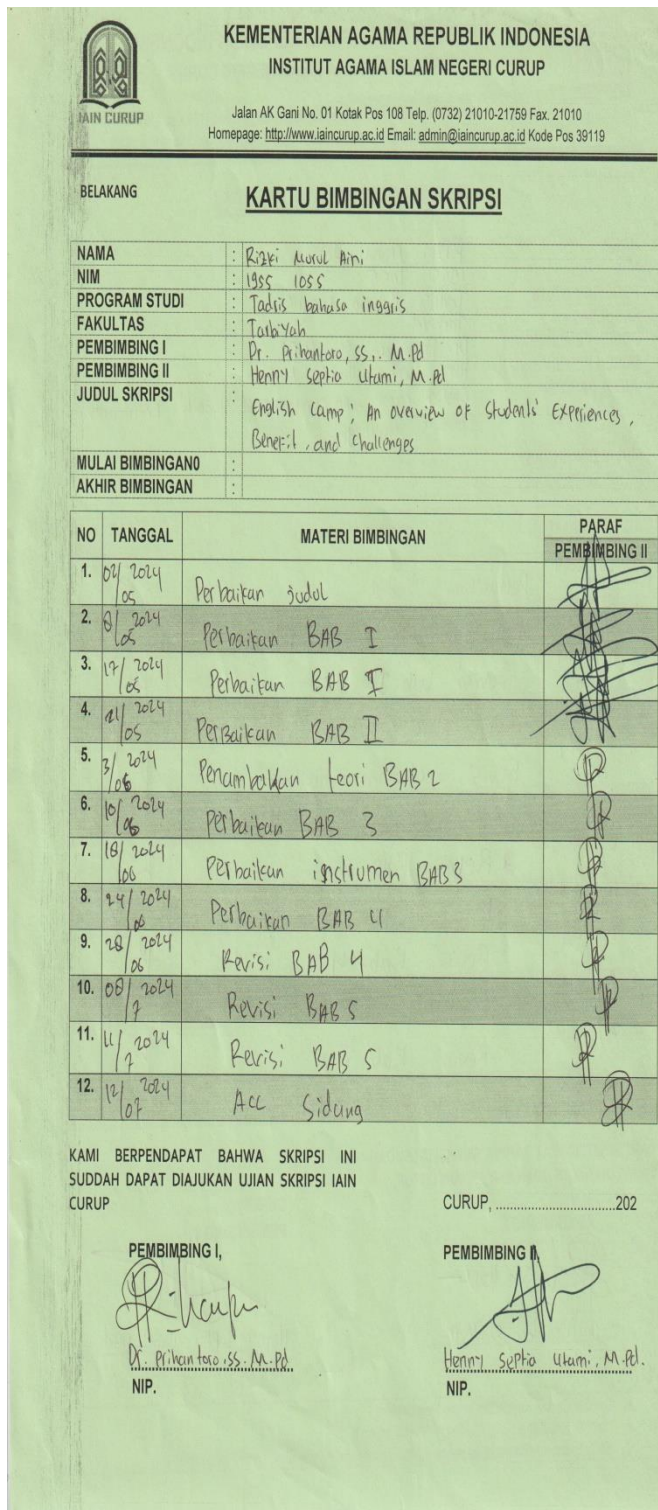 KEMENTERIAN AGAMA REPUBLIK INDONESIA
INSTITUT AGAMA ISLAM NEGERI CURUP
IAIN CURUP
Jalan AK Gani No. 01 Kotak Pos 108 Telp. (0732) 21010-21759 Fax. 21010
Homepage: http://www.iaincurup.ac.id Email: admin@iaincurup.ac.id Kode Pos 39119
BELAKANG
KARTU BIMBINGAN SKRIPSI
NAMA : Rizki Nurul Aini
NIM : 1955 1055
PROGRAM STUDI : Tadris bahasa inggris
FAKULTAS : Tarbiyah
PEMBIMBING I : Dr. Prihantoro, SS,. M.Pd
PEMBIMBING II : Henny Septia Utami, M.Pd
JUDUL SKRIPSI : English Camp; An overview of Students' Experiences,
Benefit, and challenges
MULAI BIMBINGAN0 :
AKHIR BIMBINGAN :
NO TANGGAL MATERI BIMBINGAN PARAF
PEMBIMBING II
1. 02/05 2024 Perbaikan judul
2. 8/05 2024 Perbaikan BAB I
3. 17/05 2024 Perbaikan BAB I
4. 21/05 2024 Perbaikan BAB II
5. 3/06 2024 Penambahan teori BAB 2
6. 10/06 2024 Perbaikan BAB 3
7. 18/06 2024 Perbaikan instrumen BAB 3
8. 24/06 2024 Perbaikan BAB 4
9. 28/06 2024 Revisi BAB 4
10. 08/7 2024 Revisi BAB 5
11. 11/7 2024 Revisi BAB 5
12. 12/07 2024 Acc Sidang
KAMI BERPENDAPAT BAHWA SKRIPSI INI
SUDDAH DAPAT DIAJUKAN UJIAN SKRIPSI IAIN
CURUP
CURUP, ................................202
PEMBIMBING I, PEMBIMBING II,
Dr. Prihantoro, SS. M.Pd Henny Septia Utami, M.Pd.
NIP. NIP.